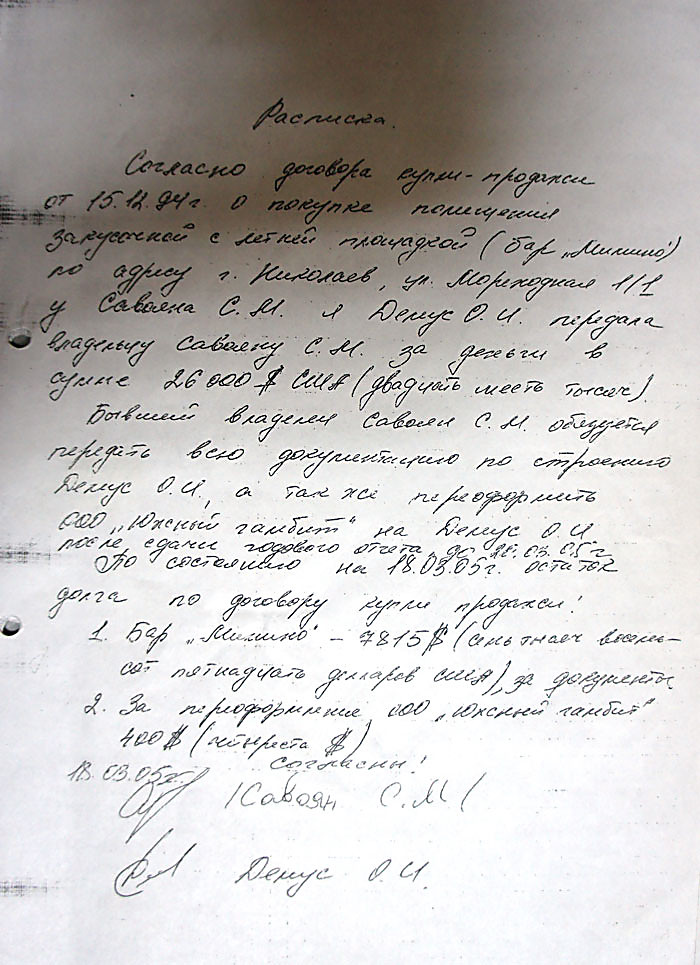 Расписка.
Согласно договора купли-продажи
от 15.12.94г. о покупке помещения
закусочной с летней площадкой (бар „Мимино")
по адресу г. Николаев, ул. Мореходная 1/1
у Савояна С.М. я Демус О.И. передала
владельцу Савояну С.М. за деньги в
сумме 26 000 $ США (двадцать шесть тысяч).
Бывший владелец Савоян С.М. обязуется
передать всю документацию по строению
Демус О.И., а так же переоформить
ООО „Южный гамбит" на Демус О.И
после сдачи годового отчета до 28.03.05г
По состоянию на 18.03.05г. остаток
долга по договору купли продажи:
1. Бар „Мимино" – 7815$ (семь тысяч восемь-
сот пятнадцать долларов США), за документы
2. За переоформление ООО „Южный гамбит"
400$ (четыреста $)
Согласны!
18.03.05г.
/Савоян С.М/
Демус О.И.